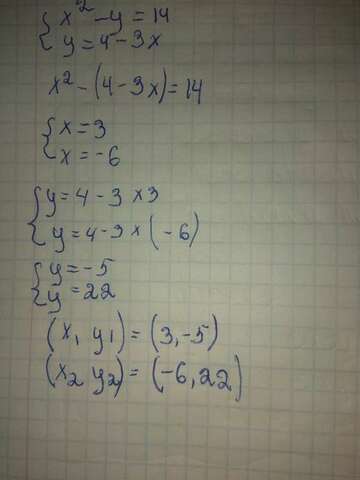 { x² - y = 14
{ y = 4 - 3x
x² - (4 - 3x) = 14
{ x = 3
{ x = -6
{ y = 4 - 3 × 3
{ y = 4 - 3 × (-6)
{ y = -5
{ y = 22
(x₁ y₁) = (3, -5)
(x₂ y₂) = (-6, 22)